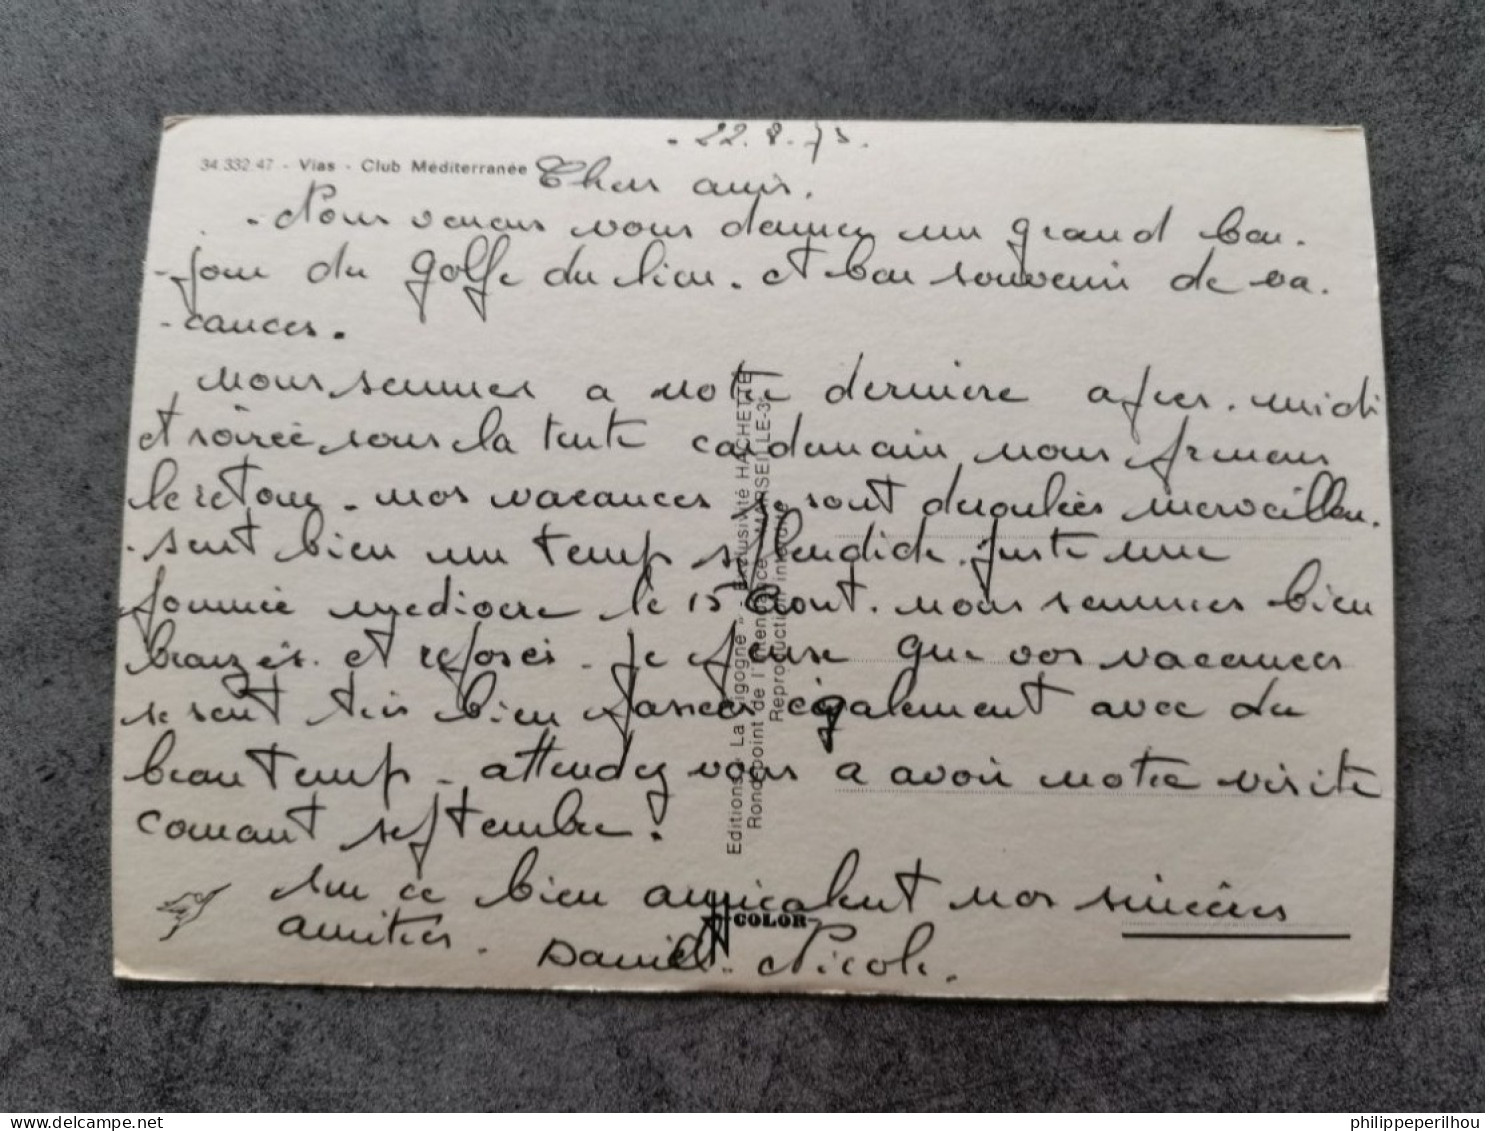 - 22.8.73.
34.332.47 - Vias - Club Méditerranée
Chers amis.
- Nous venons vous donner un grand bon.
- jour du golfe du lion. et bon souvenir de va.
- cances.
nous sommes a notre dernière apres.midi
et soirée sous la tente car demain nous prenons
le retour - nos vacances se sont deroulées merveilleu.
- sent bien un temp splendide. juste une
journée mediocre le 15 Aout. nous sommes bien
bronzés. et reposés - je pense que vos vacances
se sont très bien passées également avec du
beau temp - attendez vous a avoir notre visite
courant septembre.
Sur ce bien amicalent nos sincères
amitiés.
Daniel - Nicole.
Editions " La Cigogne " - Exclusivité HACHETTE
Rond-point de l'Intendance - MARSEILLE-3e
Reproduction interdite
COLOR
delcampe.net
philippeperilhou